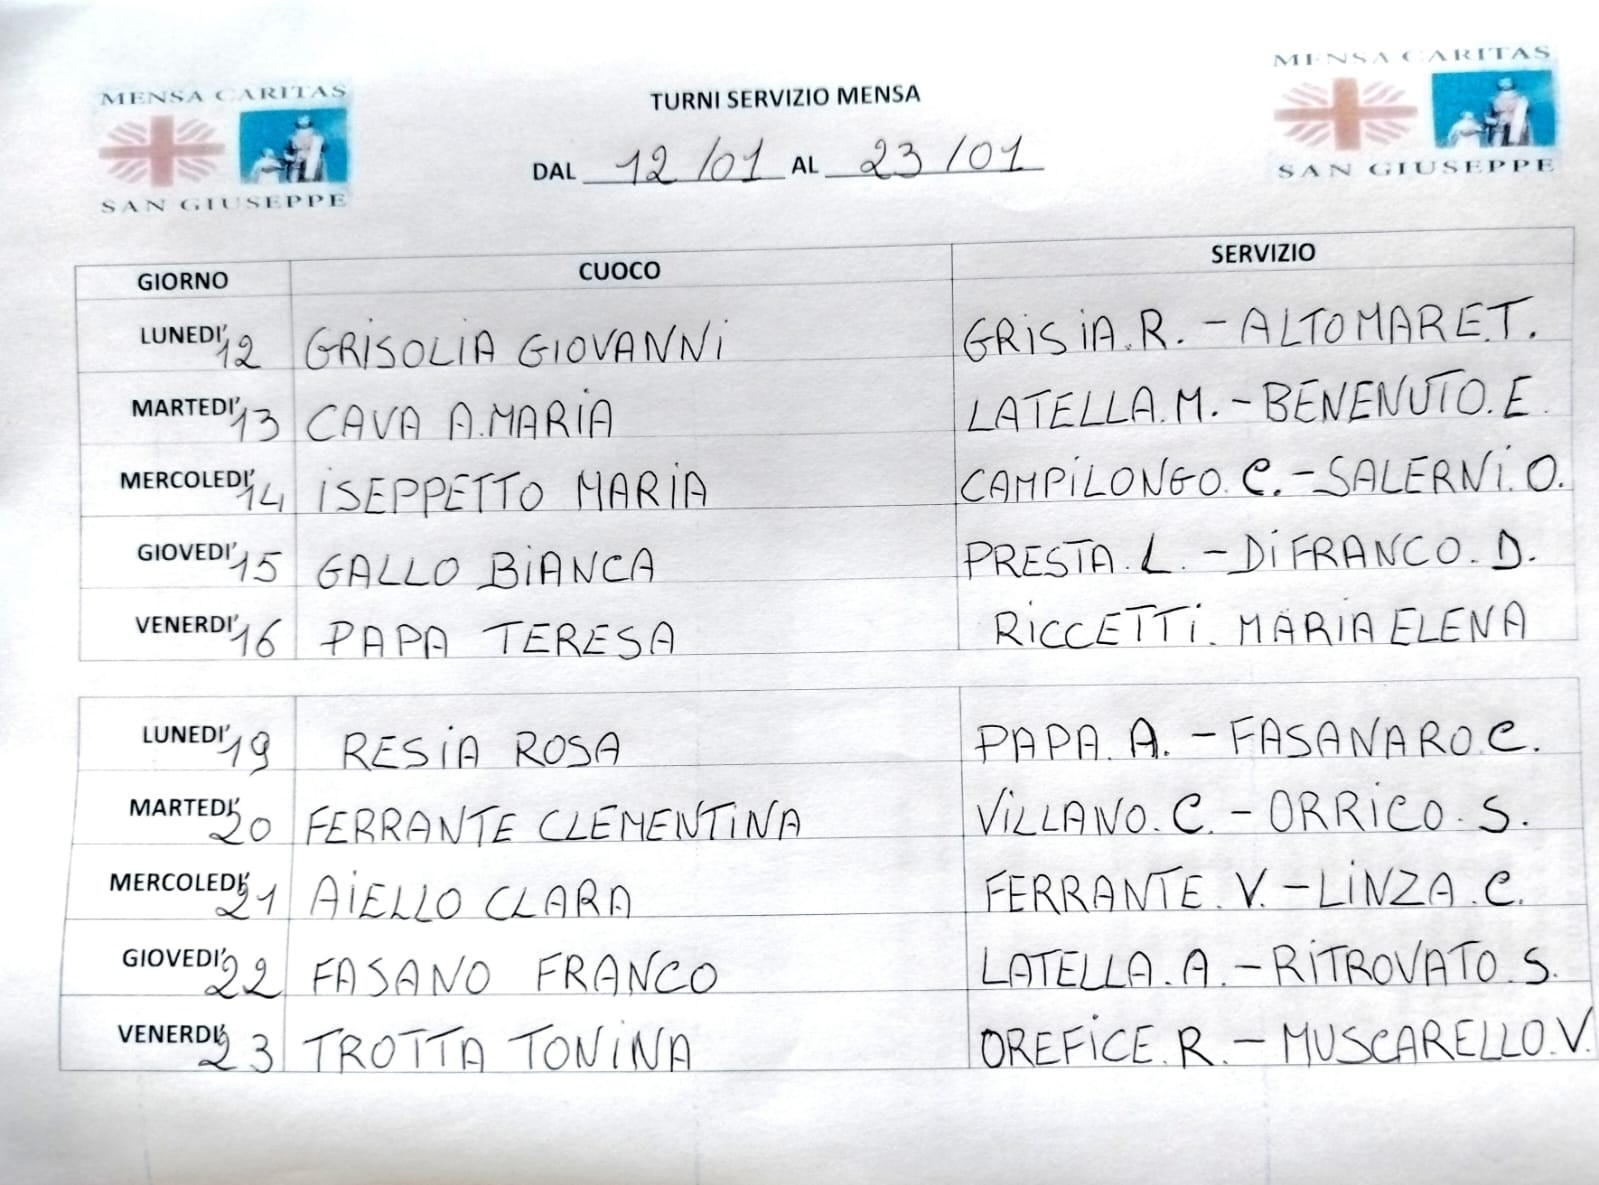 MENSA CARITAS
SAN GIUSEPPE
TURNI SERVIZIO MENSA
DAL 12/01 AL 23/01
MENSA CARITAS
SAN GIUSEPPE
GIORNO CUOCO SERVIZIO
LUNEDI' 12 GRISOLIA GIOVANNI GRISIA.R. - ALTOMARE.T.
MARTEDI' 13 CAVA A.MARIA LATELLA.M. - BENENUTO.E.
MERCOLEDI' 14 ISEPPETTO MARIA CAMPILONGO.C. - SALERNI.O.
GIOVEDI' 15 GALLO BIANCA PRESTA.L. - DIFRANCO.D.
VENERDI' 16 PAPA TERESA RICCETTI. MARIA ELENA
LUNEDI' 19 RESIA ROSA PAPA.A. - FASANARO.C.
MARTEDI' 20 FERRANTE CLEMENTINA VILLANO.C. - ORRICO.S.
MERCOLEDI' 21 AIELLO CLARA FERRANTE.V. - LINZA.C.
GIOVEDI' 22 FASANO FRANCO LATELLA.A. - RITROVATO.S.
VENERDI' 23 TROTTA TONINA OREFICE.R. - MUSCARELLO.V.